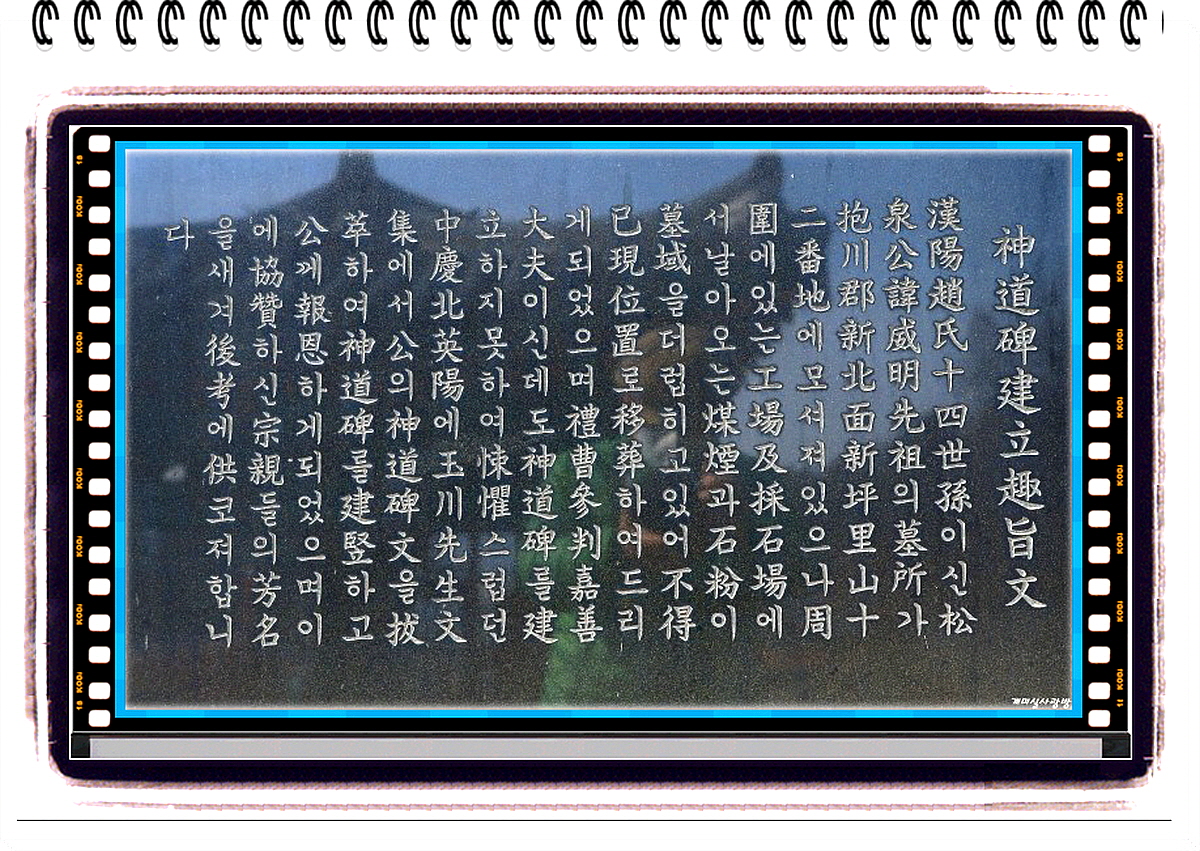 神道碑建立趣旨文
漢陽趙氏十四世孫이신松
泉公諱威明先祖의墓所가
抱川郡新北面新坪里山十
二番地에모셔져있으나周
圍에있는工場及採石場에
서날아오는煤煙과石粉이
墓域을더럽히고있어不得
已現位置로移葬하여드리
게되었으며禮曹參判嘉善
大夫이신데도神道碑를建
立하지못하여悚懼스럽던
中慶北英陽에玉川先生文
集에서公의神道碑文을拔
萃하여神道碑를建竪하고
公께報恩하게되었으며이
에協贊하신宗親들의芳名
을새겨後考에供코져합니
다
개미실사랑방